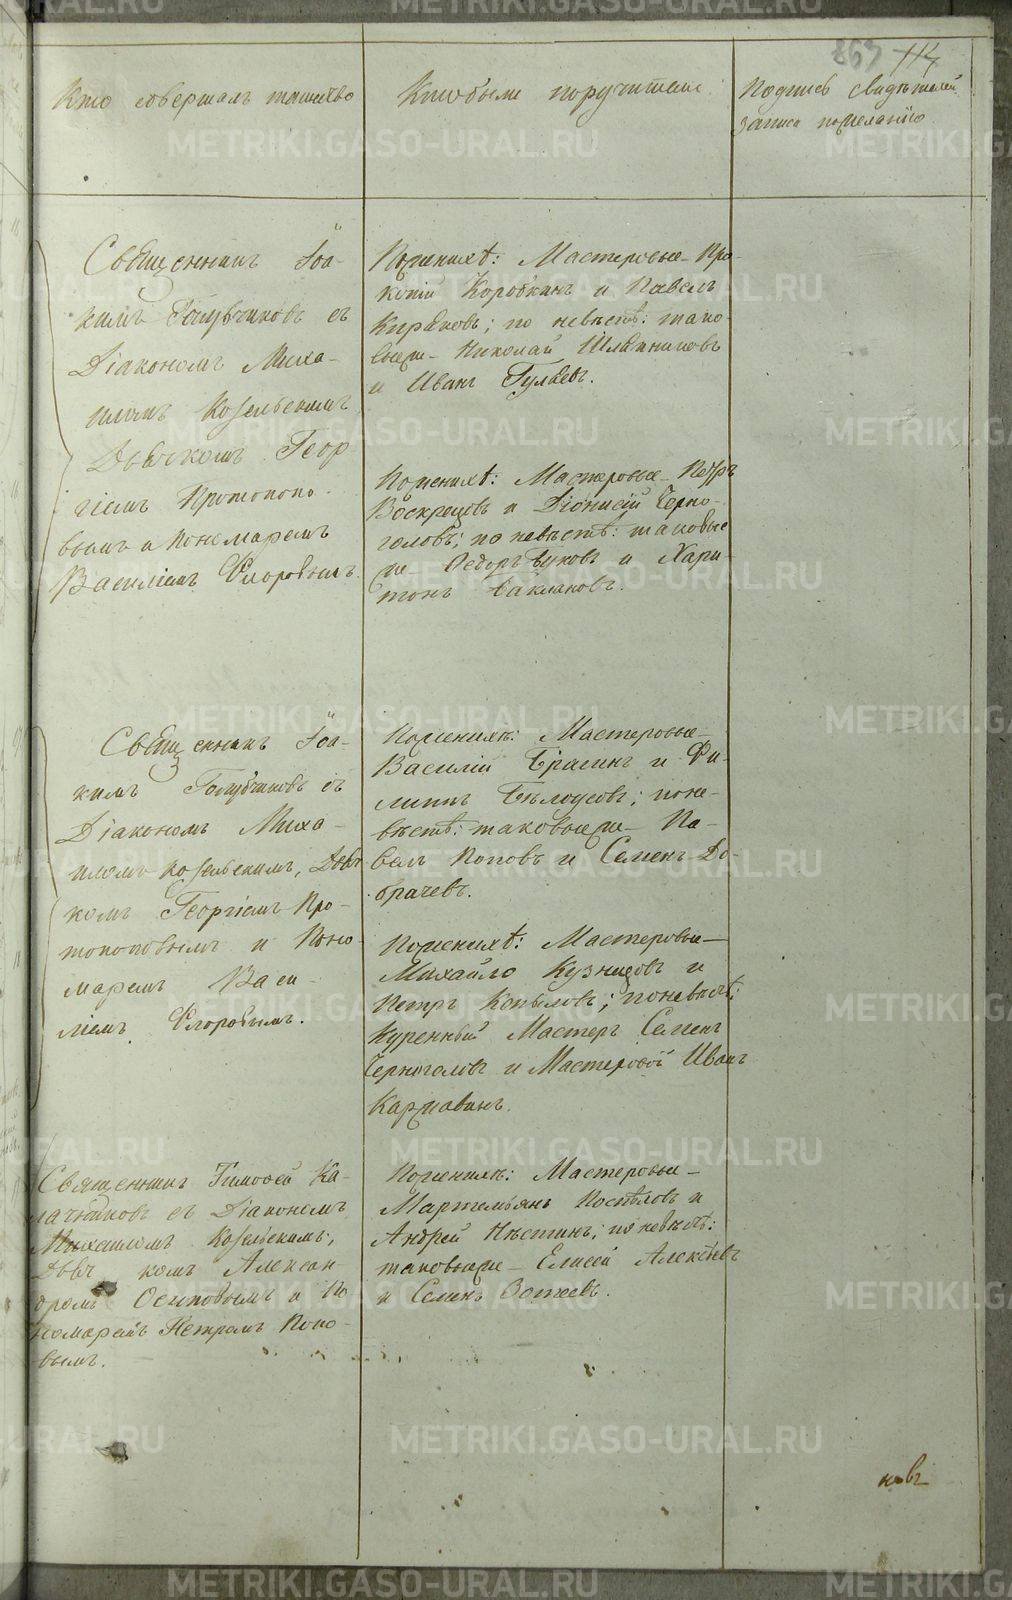 863 114
Кто совершалъ таинство
Кто были поручители
Подпись свидѣтелей
записи по желанію
Священникъ Іоа-
кимъ Голубчиковъ съ
Діакономъ Миха-
иломъ Козельскимъ
Дьячкомъ Геор
гіемъ Протопопо-
вымъ и Пономаремъ
Василіемъ Флоровымъ
По женихѣ: Мастеровые Про-
копій Коробкинъ и Павелъ
Киряковъ; по невѣстѣ: тако-
выеже Николай
и Иванъ Гуляевъ.
По женихѣ: Мастеровые Петръ
и Діонисій Черно-
головъ; по невѣстѣ: таковые
же Ѳедоръ Вуковъ и Хари-
тонъ Баклановъ.
Священникъ Іоа-
кимъ Голубчиковъ съ
Діакономъ Миха-
иломъ Козельскимъ, Дьяч
комъ Георгіемъ Про-
топоповымъ и Поно-
маремъ Васи-
ліемъ Флоровымъ.
По женихѣ: Мастеровые
Василій Брагинъ и Фи-
липпъ Бѣлоусовъ; по не-
вѣстѣ: таковыеже Па-
велъ Поповъ и Семенъ До-
брачевъ.
По женихѣ: Мастеровые
Михайло Кузнецовъ и
Петръ Копыловъ; по невѣстѣ:
Куренный Мастеръ Семенъ
Черноголовъ и Мастеровой Иванъ
Каржавинъ.
Священникъ Тимофей Ка-
лачниковъ съ Діакономъ
Михаиломъ Козельскимъ,
Дьячкомъ Алексан-
дромъ Осиповымъ и По
номаремъ Петромъ Попо-
вымъ.
По женихѣ: Мастеровые
Мартемьянъ Поспѣловъ и
Андрей; по невѣстѣ:
таковыеже Елисей Алексѣевъ
и Семенъ Зотеевъ.
новъ
METRIKI.GASO-URAL.RU